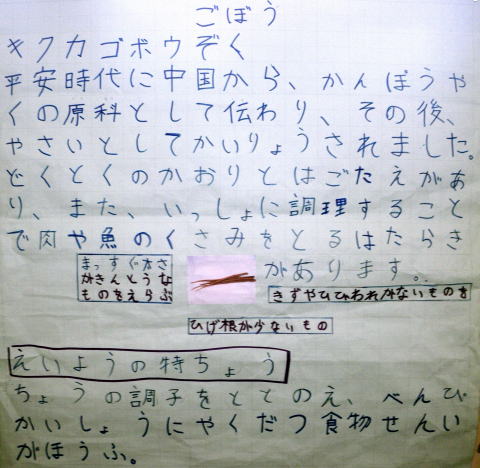 ごぼう
キクカゴボウぞく
平安時代に中国から、かんぽうや
くの原科として伝わり、その後、
やさいとしてかいりょうされました。
どくとくのかおりとはごたえがあ
り、また、いっしょに調理すること
で肉や魚のくさみをとるはたらき
があります。
まっすぐカさ
がきんとうな
ものをえらぶ
きずやひびわれがないものを
ひげ根が少ないもの
えいようの特ちょう
ちょうの調子をととのえ、べんぴ
かいしょうにやくだつ食物せんい
がほうふ。